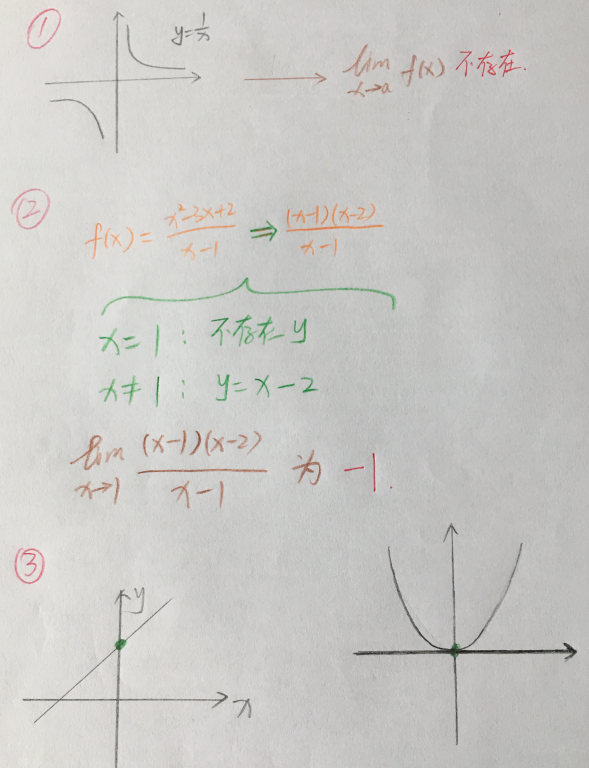 ①
y=1/x
lim x→a f(x) 不存在.
②
f(x) = (x²-3x+2)/(x-1) ⇒ (x-1)(x-2)/(x-1)
x=1 : 不存在 y
x≠1 : y=x-2
lim x→1 (x-1)(x-2)/(x-1) 为 -1.
③
y
x